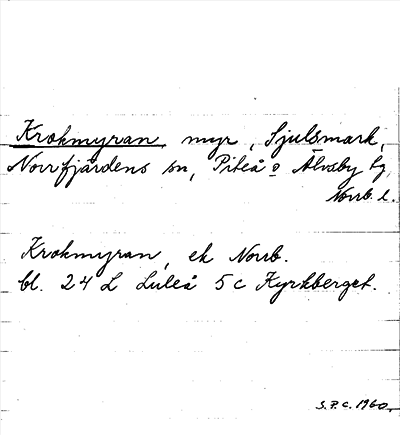 Krokmyran, myr, Sjulsmark,
Norrfjärdens sn, Piteå o Älvsby tg
Norrb. l.
Krokmyran, ek Norrb.
bl. 24 L Luleå 5 c Kyrkberget.
S.P.C. 1960.